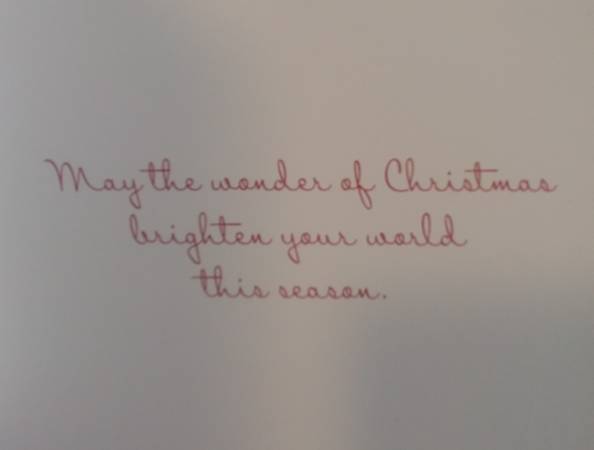 May the wonder of Christmas
brighten your world
this season.